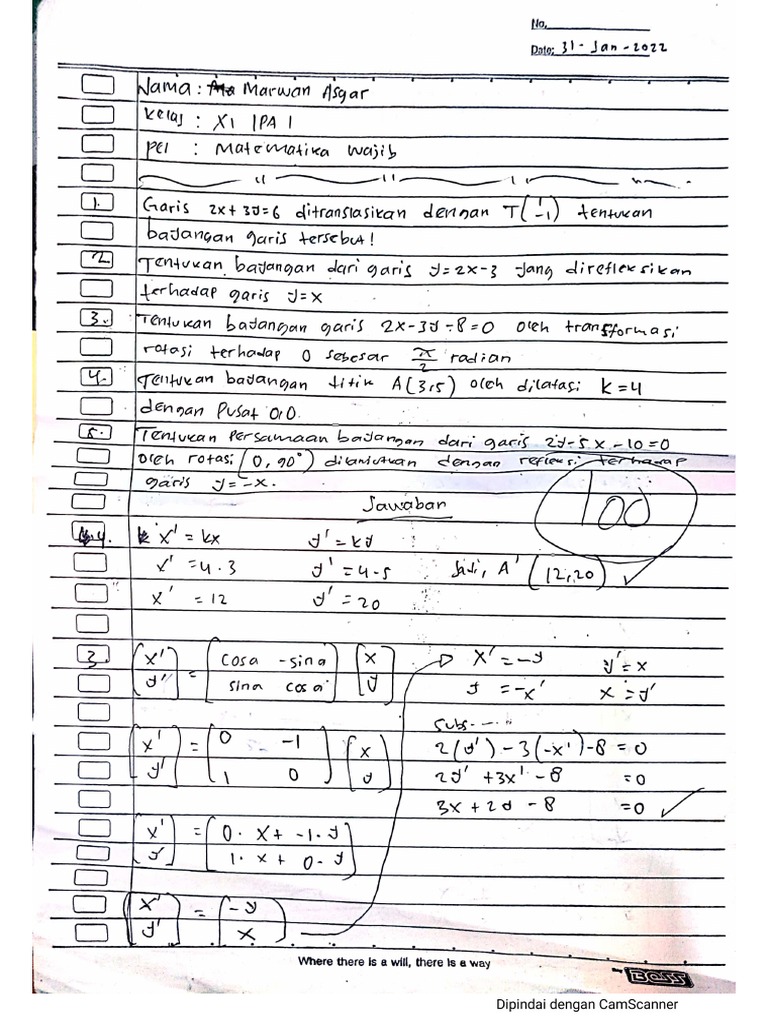 No.
Date: 31 - Jan - 2022
Nama : Marwan Asgar
Kelas : XI IPA 1
pel : Matematika wajib
1. Garis 2x + 3y = 6 ditranslasikan dengan T(1 -1) tentukan
bayangan garis tersebut!
2. Tentukan bayangan dari garis y = 2x - 3 yang direfleksikan
terhadap garis y = x
3. Tentukan bayangan garis 2x - 3y - 8 = 0 oleh transformasi
rotasi terhadap 0 sebesar π/2 radian
4. Tentukan bayangan titik A (3,5) oleh dilatasi k = 4
dengan Pusat 0,0.
5. Tentukan Persamaan bayangan dari garis 2y - 5x - 10 = 0
oleh rotasi (0, 90°) dilanjutkan dengan refleksi terhadap
garis y = -x.
Jawaban
100
4. x' = kx y' = ky
x' = 4.3 y' = 4-5 Jadi, A' (12,20) ✓
x' = 12 y' = 20
3. (x' y') = (cosa -sina sina cosa) (x y) x' = -y y' = x
y = -x' x = y'
subs
(x' y') = (0 -1 1 0) (x y) 2(y') - 3(-x') - 8 = 0
2y' + 3x' - 8 = 0
3x + 2y - 8 = 0 ✓
(x' y') = (0. x + -1. y 1. x + 0. y)
(x' y') = (-y x)
Where there is a will, there is a way
BOSS
Dipindai dengan CamScanner